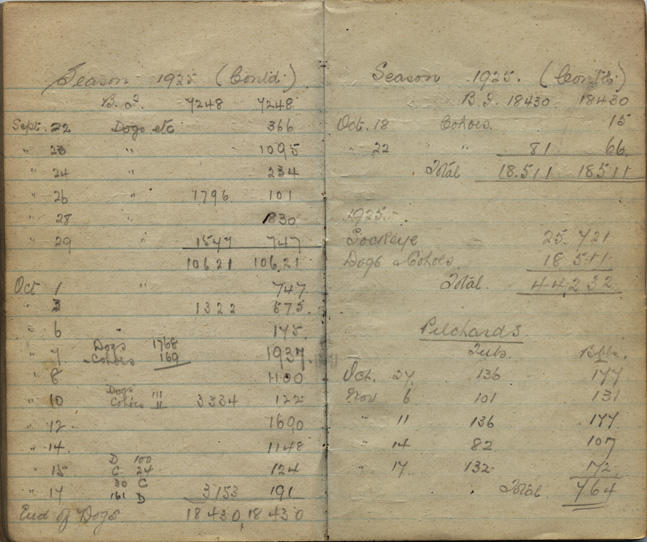 Season 1925 (Contd.)
B. F. 7248 7248
Sept. 22 Dogs etc 366
" 23 " 1095
" 24 " 234
" 26 " 1796 101
" 28 830
" 29 " 1547 747
10621 106,21
Oct 1 " 747
" 3 1322 575
" 6 " 175
" 7 Dogs 1768 Cohoes 169 1937
" 8 1100
" 10 Dogs 111 Cohoes 11 3334 122
" 12 1690
" 14 1148
" 15 D 100 C 24 124
" 17 30 C 161 D 3153 191
End of Dogs 18430, 18430
Season 1925. (Contd.)
B. F. 18430 18430
Oct. 18 Cohoes. 15
" 22 " " 81 66
Total 18.511 18511
1925.
Sockeye 25 721
Dogs & Cohoes 18 511
Total. 44,232
Pilchards
Tubs. Bbls.
Oct. 27 136 177
Nov 6 101 131
" 11 136 177
" 14 82 107
" 17 132 172
Total 764